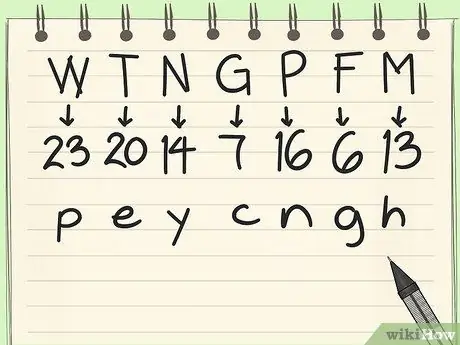 W T N G P F M
↓ ↓ ↓ ↓ ↓ ↓ ↓
23 20 14 7 16 6 13
p e y c n g h
wikiHow